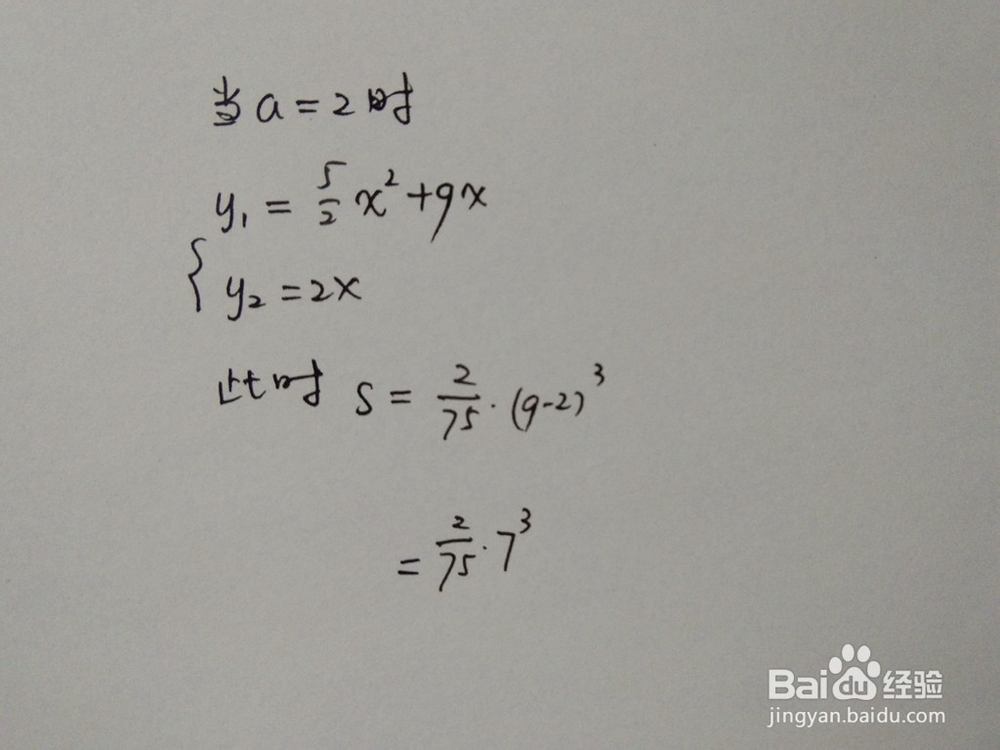 当a=2时
y₁ = 5/2 x² + 9x
{ y₂ = 2x
此时 S = 2/75 · (9-2)³
= 2/75 · 7³
Baidu 经验
jingyan.baidu.com